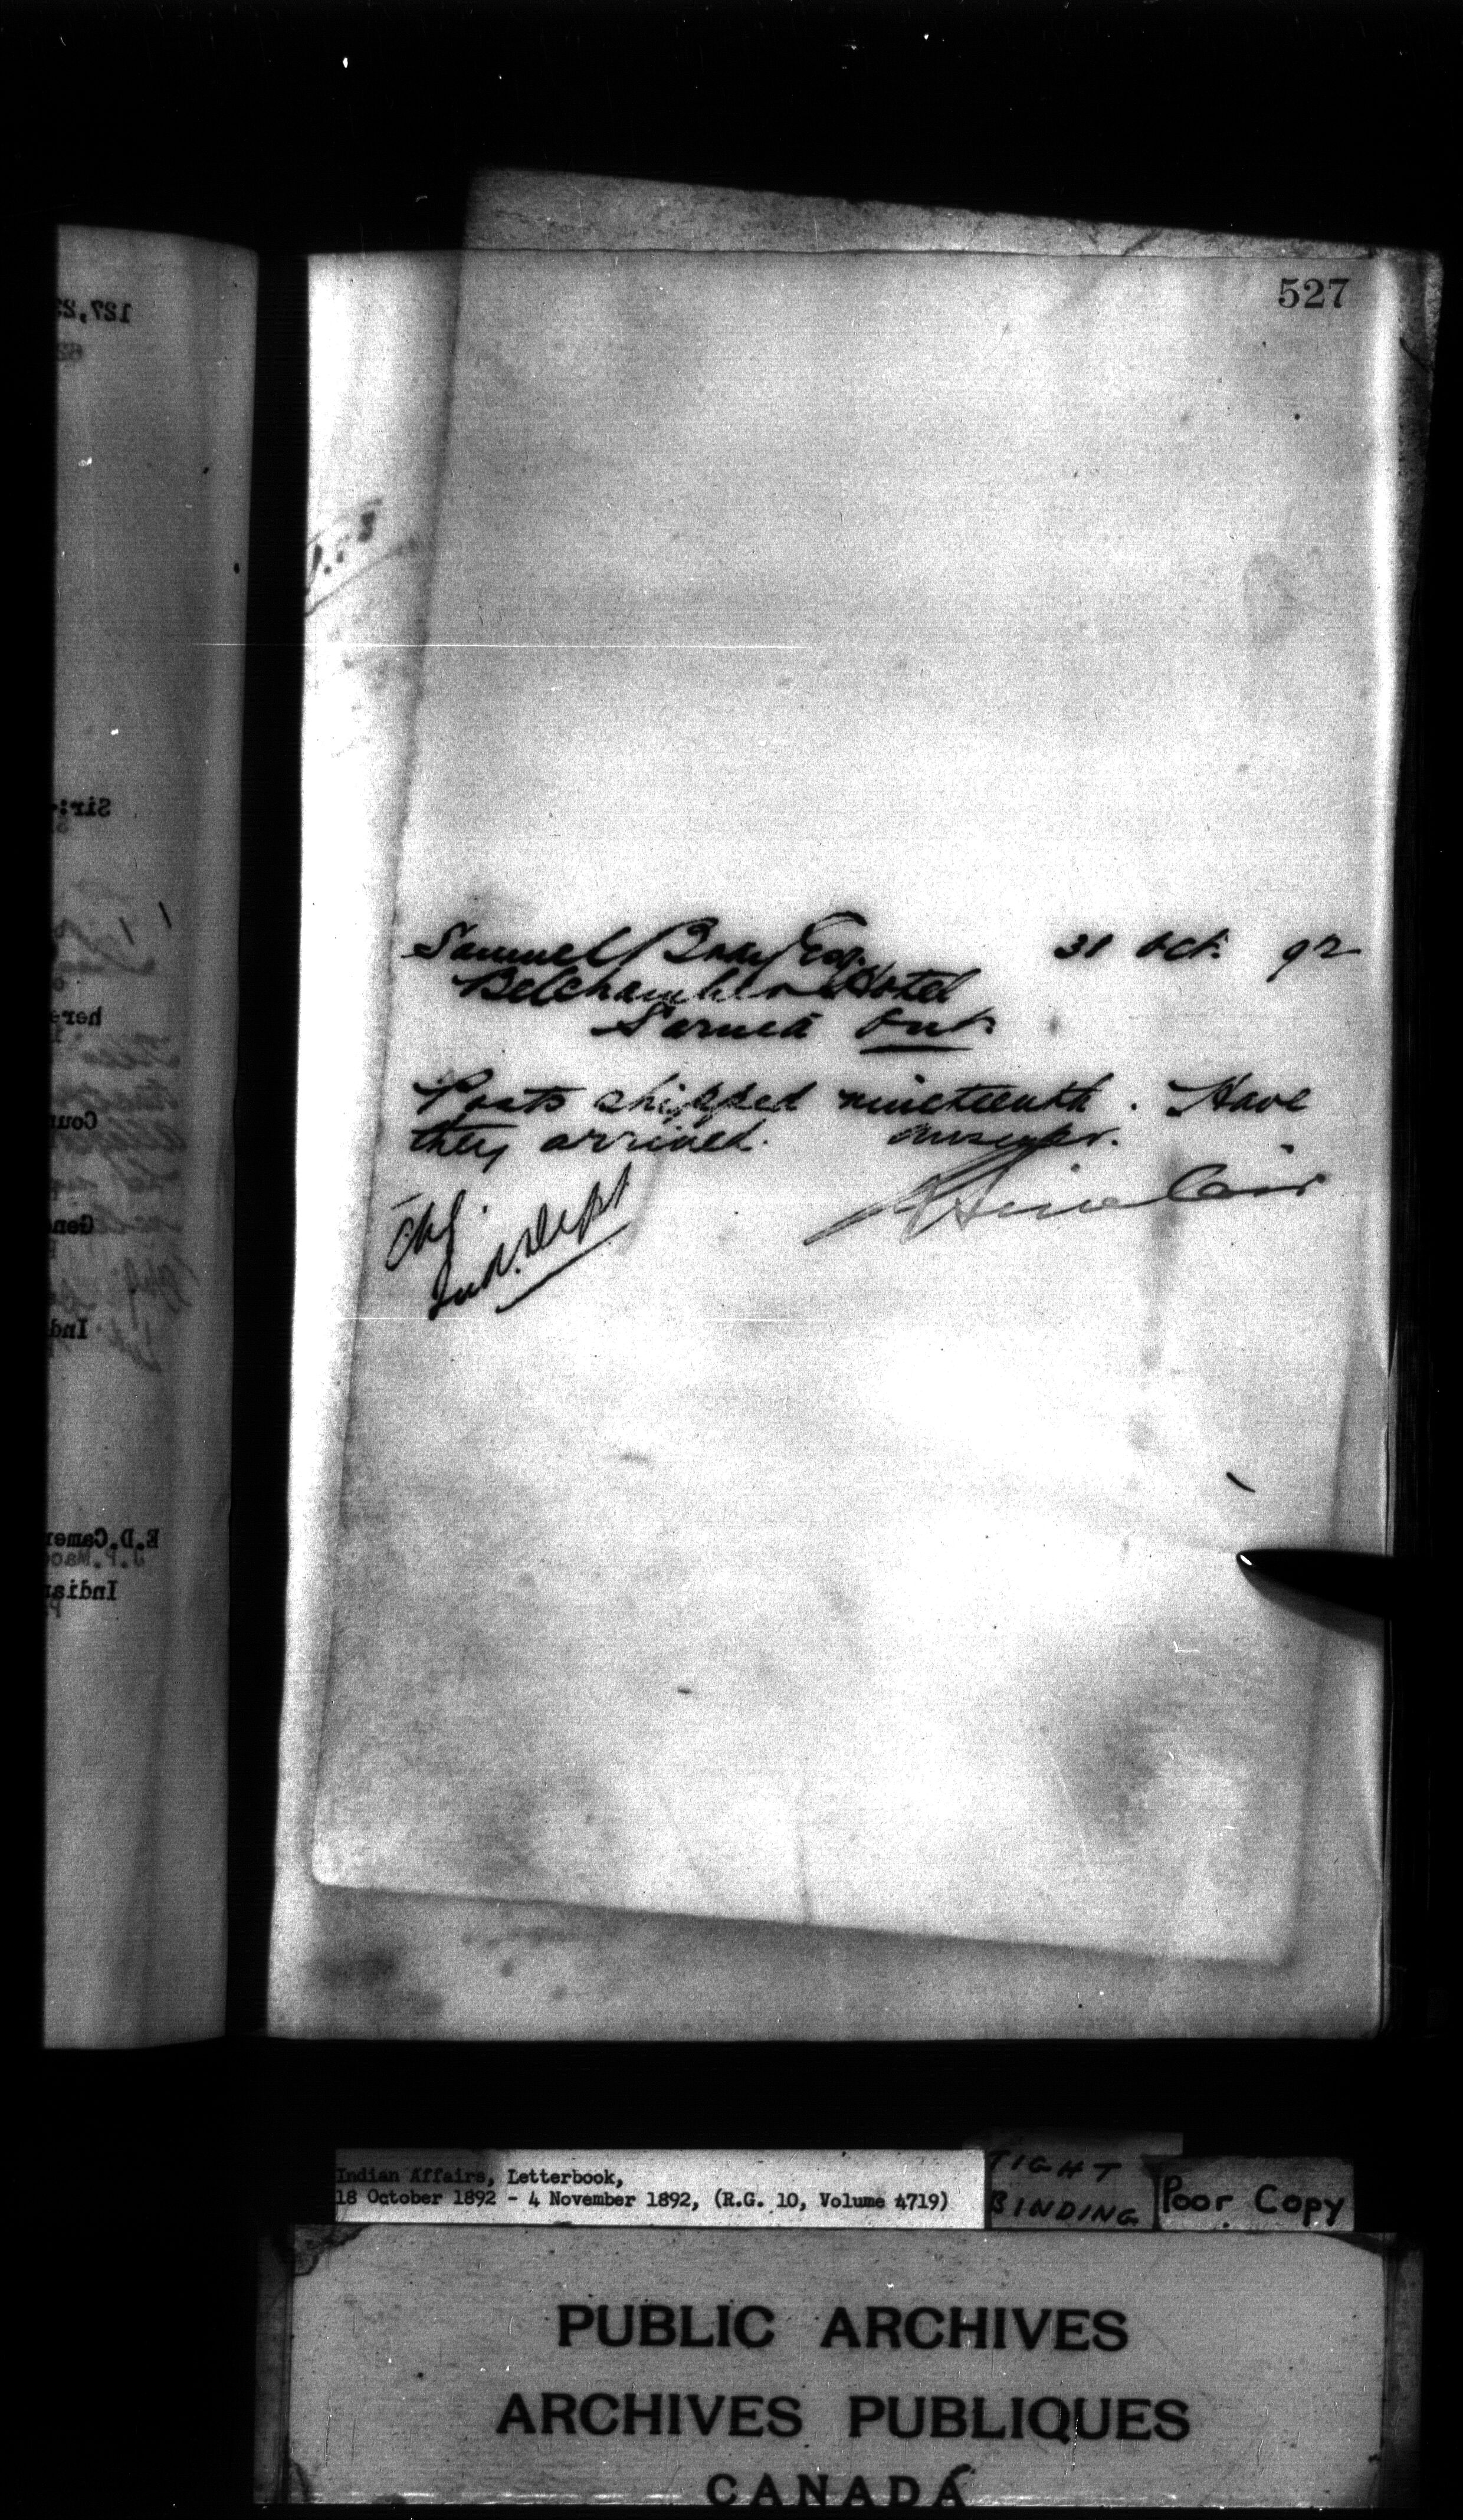 527
Samuel Bray Esq. 31 Oct. 92
Belchamber Hotel
Sarnia Ont.
Posts shipped nineteenth. Have
they arrived. Answer.
Sinclair
Chg.
Ind. Dept
127,23
Sir:-
here
Coun
Gen
Ind
E.D.Camer
J.P.Mac
Indian
Indian Affairs, Letterbook,
18 October 1892 - 4 November 1892, (R.G. 10, Volume 4719)
TIGHT
BINDING
Poor Copy
PUBLIC ARCHIVES
ARCHIVES PUBLIQUES
CANADA